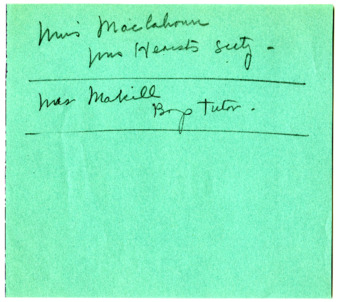 Miss Maclahoun
Mrs Hearsts Secty -
Miss Makill
Boys Tutor.